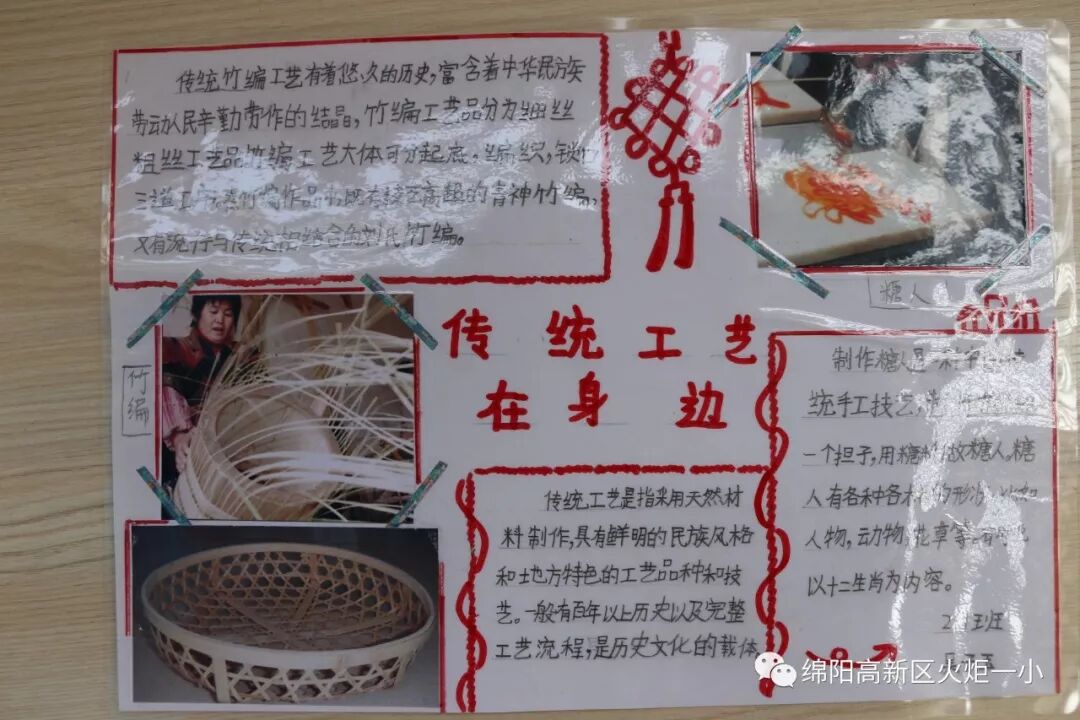 传统竹编工艺有着悠久的历史,富含着中华民族
劳动人民辛勤劳作的结晶,竹编工艺品分为细丝
粗丝工艺品竹编工艺大体可分起底,编织,锁
三道工序
竹编作品
的青神竹编,
又有流行与传统相结合的刘氏竹编。
糖人
竹编
传统工艺
在身边
制作糖人是一种
统手工技艺,
一个担子,用糖
做糖人。糖
人有各种各
的形
人物,动物,花草等
以十二生肖为内容。
班
传统工艺是指采用天然材
料制作,具有鲜明的民族风格
和地方特色的工艺品种和技
艺。一般有百年以上历史以及完整
工艺流程,是历史文化的载体
绵阳高新区火炬一小